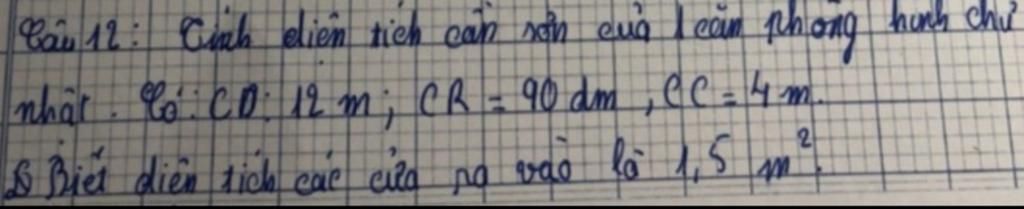 Câu 12: Tính diện tích cần sơn của 1 căn phòng hình chữ
nhật. Có: CD: 12 m; CR = 90 dm, CC = 4 m.
Biết diện tích các cửa ra vào là 1,5 m².